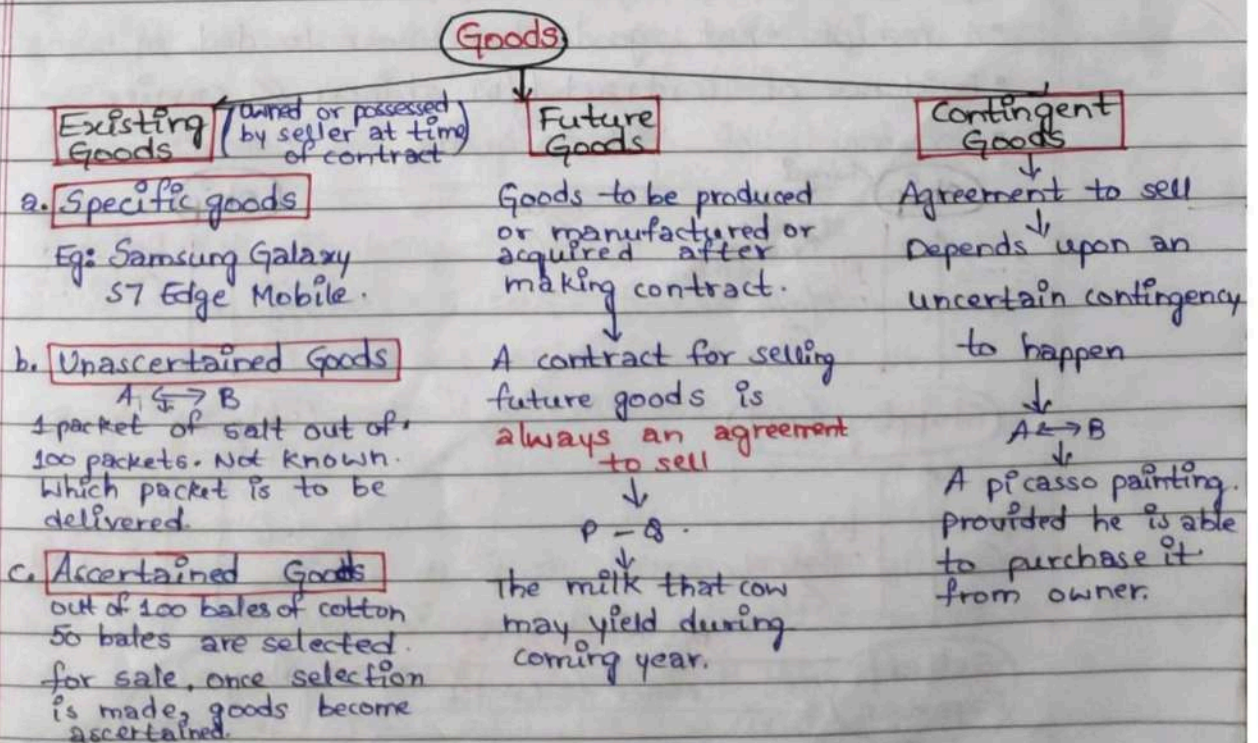 Goods
Existing
Goods
(owned or possessed
by seller at time
of contract)
a. Specific goods
Eg: Samsung Galaxy
S7 Edge Mobile.
b. Unascertained Goods
A ↔ B
1 packet of salt out of
100 packets. Not known.
which packet is to be
delivered.
c. Ascertained Goods
out of 100 bales of cotton
50 bales are selected.
for sale, once selection
is made, goods become
ascertained.
Future
Goods
Goods to be produced
or manufactured or
acquired after
making contract.
↓
A contract for selling
future goods is
always an agreement
to sell
↓
P - Q.
↓
The milk that cow
may yield during
coming year.
Contingent
Goods
↓
Agreement to sell
↓
Depends upon an
uncertain contingency
to happen
↓
A ↔ B
↓
A picasso painting.
provided he is able
to purchase it
from owner.